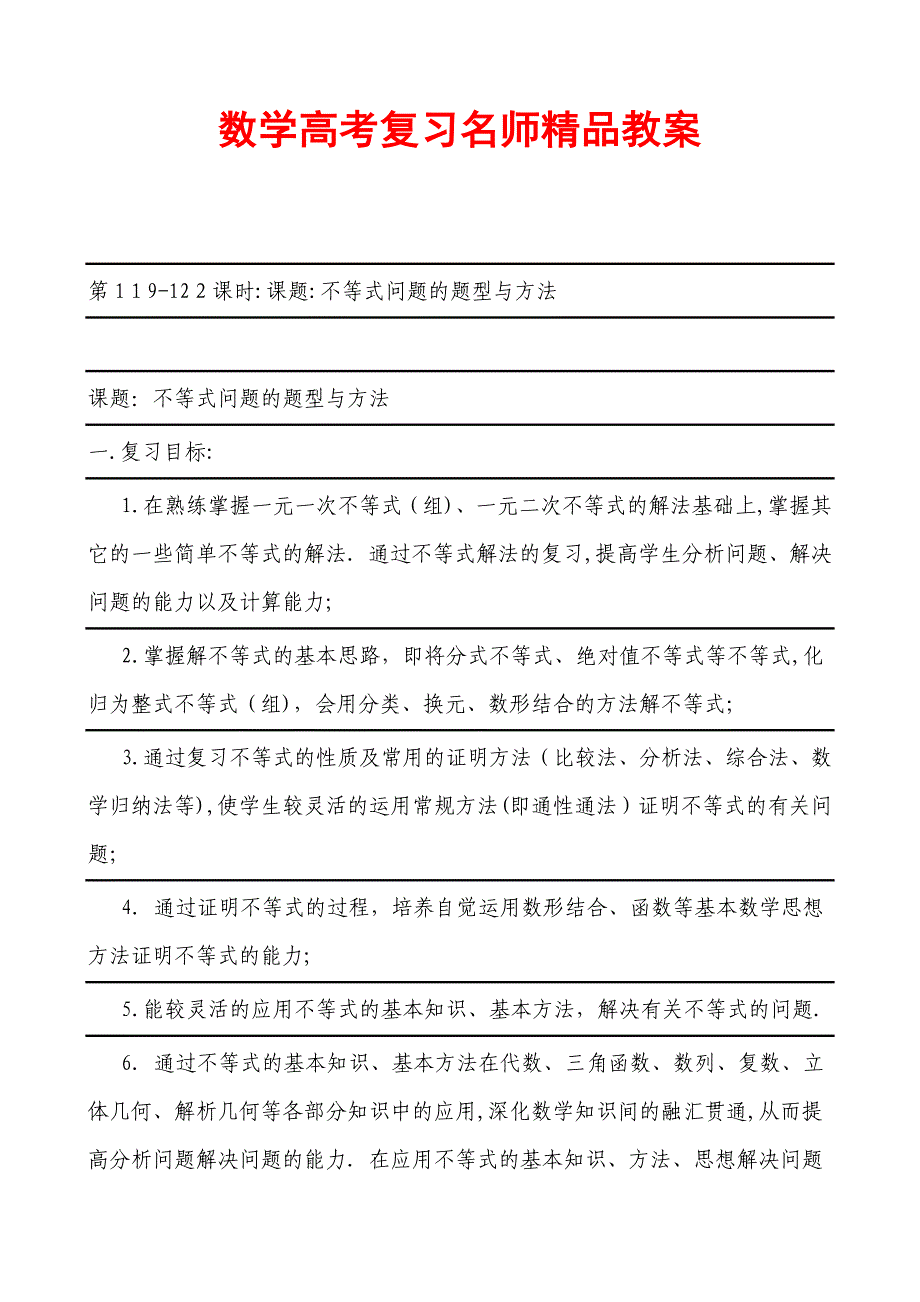 数学高考复习名师精品教案
第119-122课时:课题:不等式问题的题型与方法
课题：不等式问题的题型与方法
一.复习目标:
1.在熟练掌握一元一次不等式（组)、一元二次不等式的解法基础上,掌握其
它的一些简单不等式的解法．通过不等式解法的复习,提高学生分析问题、解决
问题的能力以及计算能力;
2.掌握解不等式的基本思路，即将分式不等式、绝对值不等式等不等式,化
归为整式不等式（组)，会用分类、换元、数形结合的方法解不等式;
3.通过复习不等式的性质及常用的证明方法（比较法、分析法、综合法、数
学归纳法等),使学生较灵活的运用常规方法(即通性通法）证明不等式的有关问
题;
4．通过证明不等式的过程，培养自觉运用数形结合、函数等基本数学思想
方法证明不等式的能力;
5.能较灵活的应用不等式的基本知识、基本方法，解决有关不等式的问题．
6．通过不等式的基本知识、基本方法在代数、三角函数、数列、复数、立
体几何、解析几何等各部分知识中的应用,深化数学知识间的融汇贯通,从而提
高分析问题解决问题的能力．在应用不等式的基本知识、方法、思想解决问题